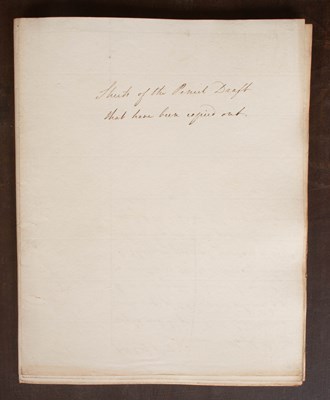 Sheets of the Pencil Draft
that have been copied out.